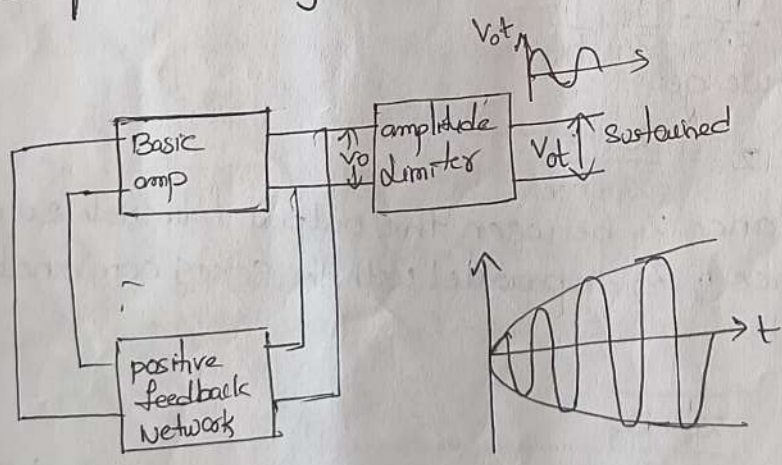 Vot
Basic
amp
Vo
amplitude
Limiter
Vot
Sustained
t
positive
feedback
Network